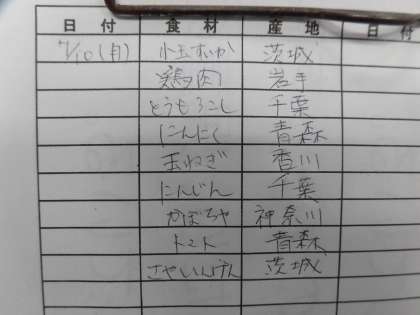 日付 食材 産地 日付
7/10(月) 小玉すいか 茨城
鶏肉 岩手
とうもろこし 千葉
にんにく 青森
玉ねぎ 香川
にんじん 千葉
かぼちゃ 神奈川
トマト 青森
さやいんげん 茨城